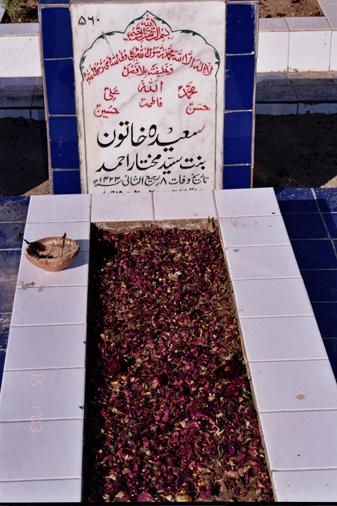 ۵۶۰
بسم اللہ الرحمن الرحیم
لا الہ الا اللہ محمد رسول اللہ علی ولی اللہ وصی رسول اللہ
وخلیفتہ بلا فصل
محمدؐ اللہ علیؑ
حسنؑ فاطمہؑ حسینؑ
سعیدہ خاتون
بنت سید مختار احمد
تاریخ وفات ۸ ربیع الثانی ۱۴۲۳